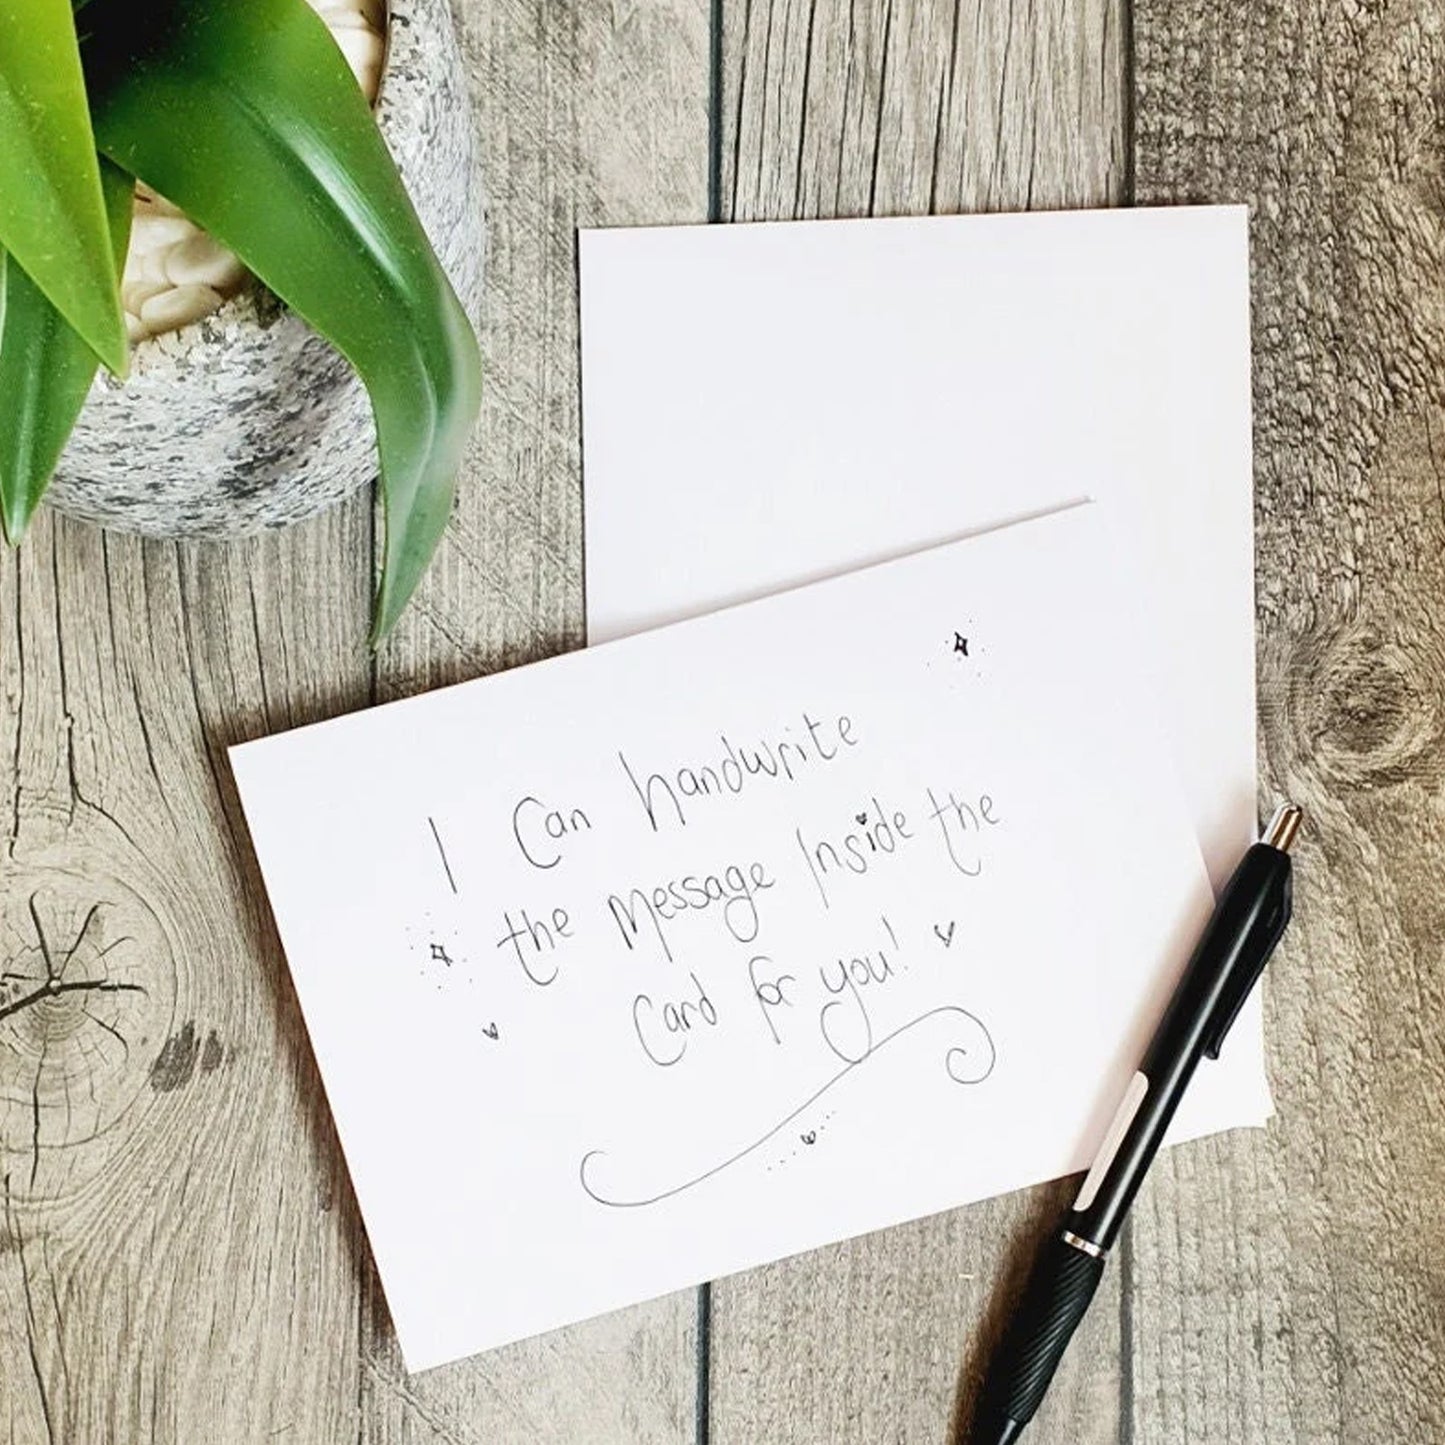 I Can handwrite
the message Inside the
Card for you!